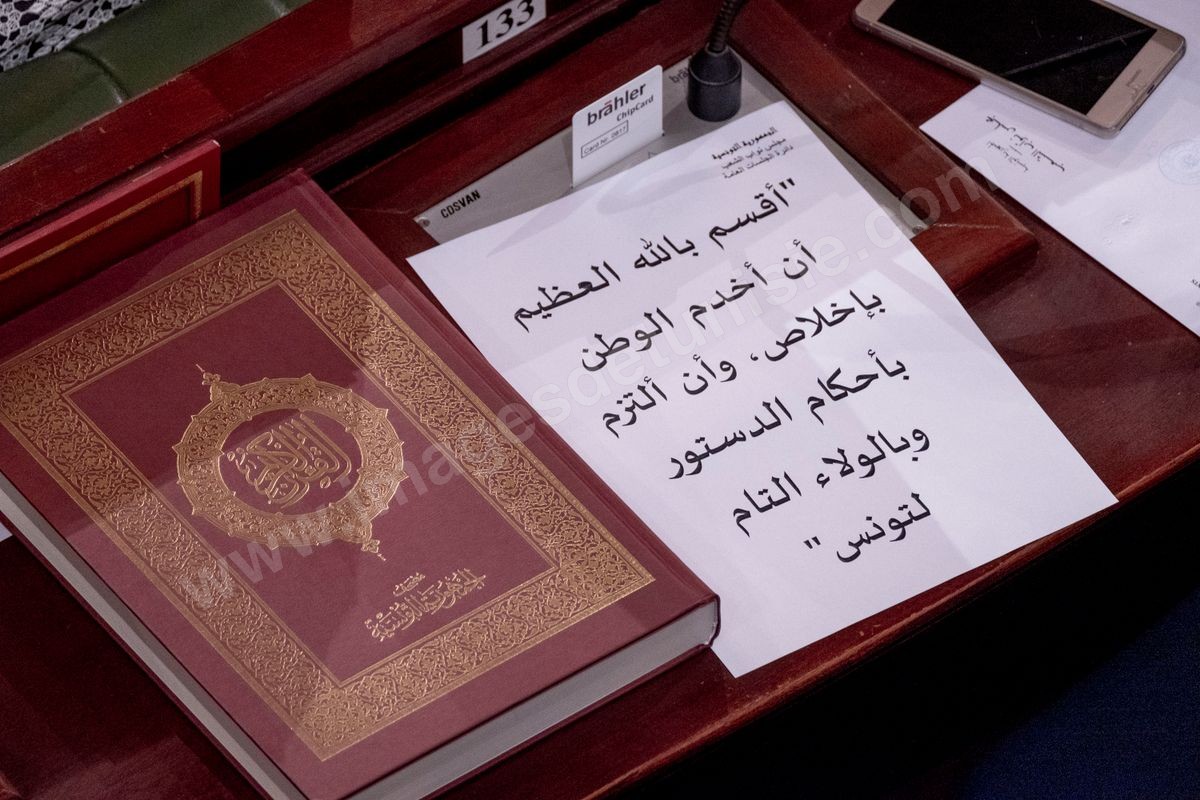 133
brähler
ChipCard
Card Nr. 0817
CDSVAN
الجمهورية التونسية
مجلس نواب الشعب
دائرة الجلسات العامة
"أقسم بالله العظيم
أن أخدم الوطن
بإخلاص، وأن ألتزم
بأحكام الدستور
وبالولاء التام
لتونس"
القرآن الكريم
مصحف
الجمهورية التونسية
www.imagesdetunisie.com